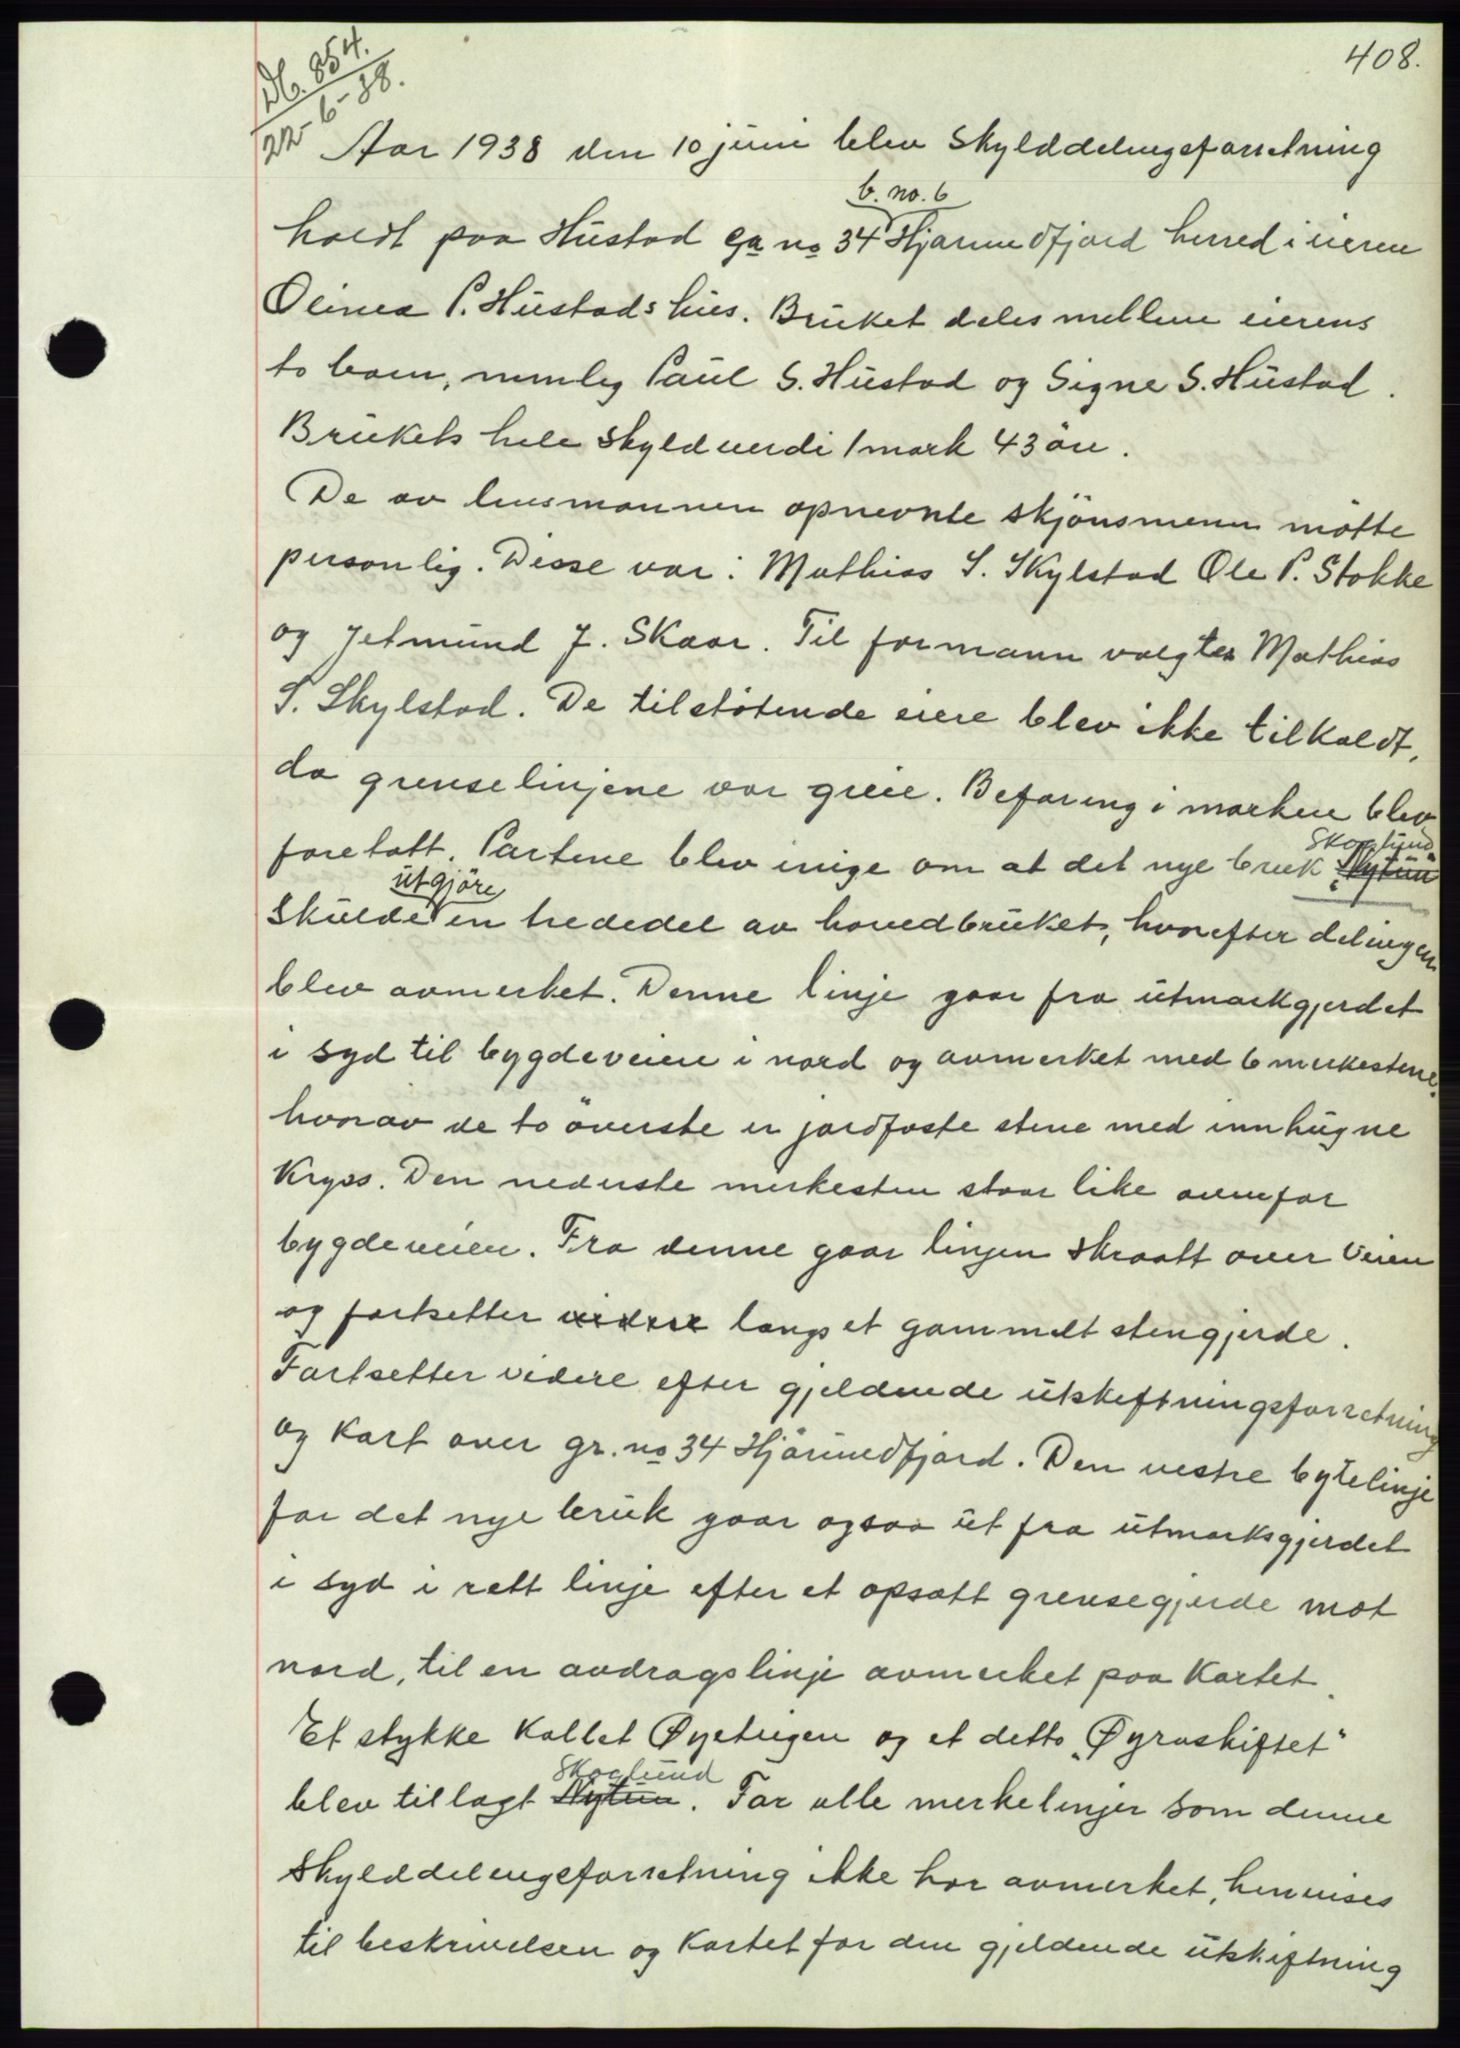 408.
Db. 854.
22-6-38.
Aar 1938 den 10 juni blev skylddelingsforretning
b. no. 6
holdt paa Hustad ga no 34 Hjørundfjord herred i eieren
Olinea P. Hustads hus. Bruket deles mellem eierens
to barn, nemlig Paul S. Hustad og Signe S. Hustad.
Brukets hele skyldverdi 1 mark 43 öre.
De av lensmannen opnevnte skjönsmenn mötte
personlig. Disse var: Mathias S. Skylstad Ole P. Stokke
og Jetmund J. Skaar. Til formann valgtes Mathias
S. Skylstad. De tilstötende eiere blev ikke tilkaldt,
da grenselinjene var greie. Befaring i marken blev
Skoglund
foretatt. Partene blev enige om at det nye bruk "Nytun"
utgjöre
skulde en trededel av hovedbruket, hvorefter delingen
blev avmerket. Denne linje gaar fra utmarkgjerdet
i syd til bygdeveien i nord og avmerket med 6 merkestene,
hvorav de to överste er jordfaste stene med innhugne
kryss. Den nederste merkesten staar like ovenfor
bygdeveien. Fra denne gaar linjen skraatt over veien
og fortsetter videre langs et gammelt stengjerde.
Fortsetter videre efter gjeldende utskiftningsforretning
og kart over gr. no 34 Hjörundfjord. Den vestre bytelinje
for det nye bruk gaar ogsaa ut fra utmarksgjerdet
i syd i rett linje efter et opsatt grensegjerde mot
nord, til en avdragslinje avmerket paa kartet.
Et stykke kallet Øyetuigen og et detto "Øyraskiftet"
Skoglund
blev tillagt Nytun. For alle merkelinjer som denne
skylddelingsforretning ikke har avmerket, henvises
til beskrivelsen og kartet for den gjeldende utskiftning